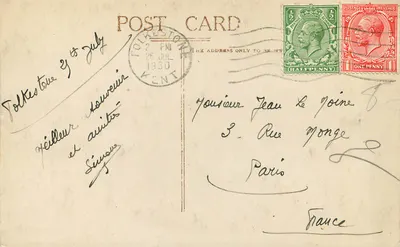 POST CARD
THE ADDRESS ONLY TO BE
FOLKESTONE
PM
1930
KENT
HALFPENNY
ONE PENNY
Folkestone 21st July
Meilleur souvenir
et amitiés
Simone
Monsieur Jean Le Moine
3 Rue Monge
Paris
France